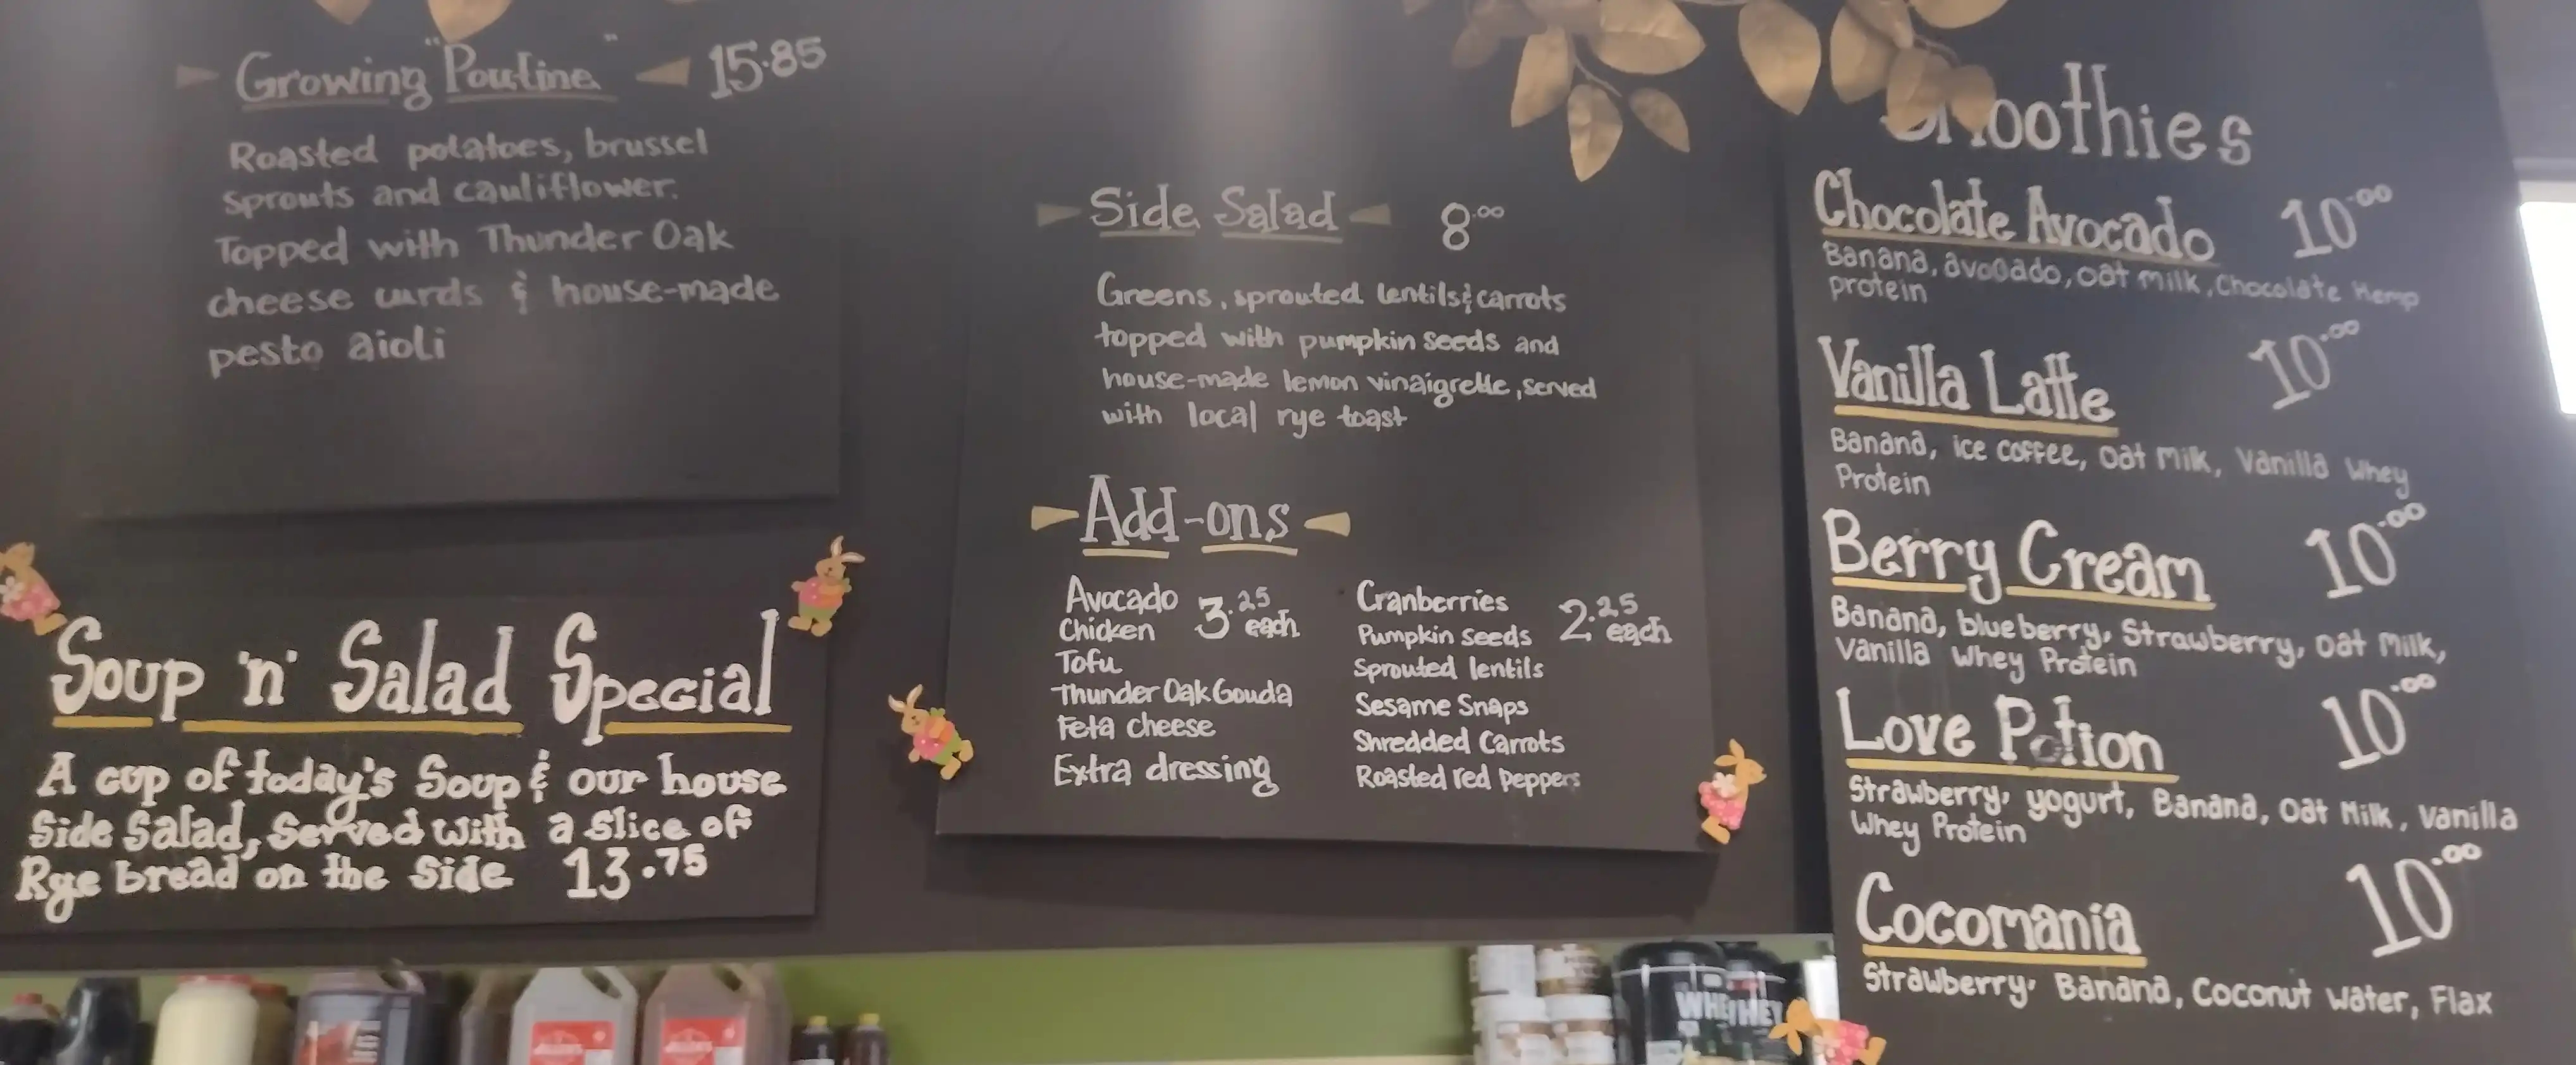 Growing "Poutine" 15.85
Roasted potatoes, brussel
sprouts and cauliflower.
Topped with Thunder Oak
cheese curds & house-made
pesto aioli
Soup 'n' Salad Special
A cup of today's Soup & our house
Side Salad, Served with a slice of
Rye bread on the side 13.75
Side Salad 8.00
Greens, sprouted lentils & carrots
topped with pumpkin seeds and
house-made lemon vinaigrette, served
with local rye toast
Add-ons
Avocado
Chicken
3.25 each
Tofu
Thunder Oak Gouda
Feta cheese
Extra dressing
Cranberries
Pumpkin seeds
2.25 each
Sprouted lentils
Sesame Snaps
Shredded Carrots
Roasted red peppers
Smoothies
Chocolate Avocado 10.00
Banana, avocado, oat milk, Chocolate Hemp
protein
Vanilla Latte 10.00
Banana, ice coffee, oat Milk, Vanilla Whey
Protein
Berry Cream 10.00
Banana, blueberry, Strawberry, oat Milk,
Vanilla Whey Protein
Love Potion 10.00
Strawberry, yogurt, Banana, Oat Milk, Vanilla
Whey Protein
Cocomania 10.00
Strawberry, Banana, Coconut Water, Flax
WHEY